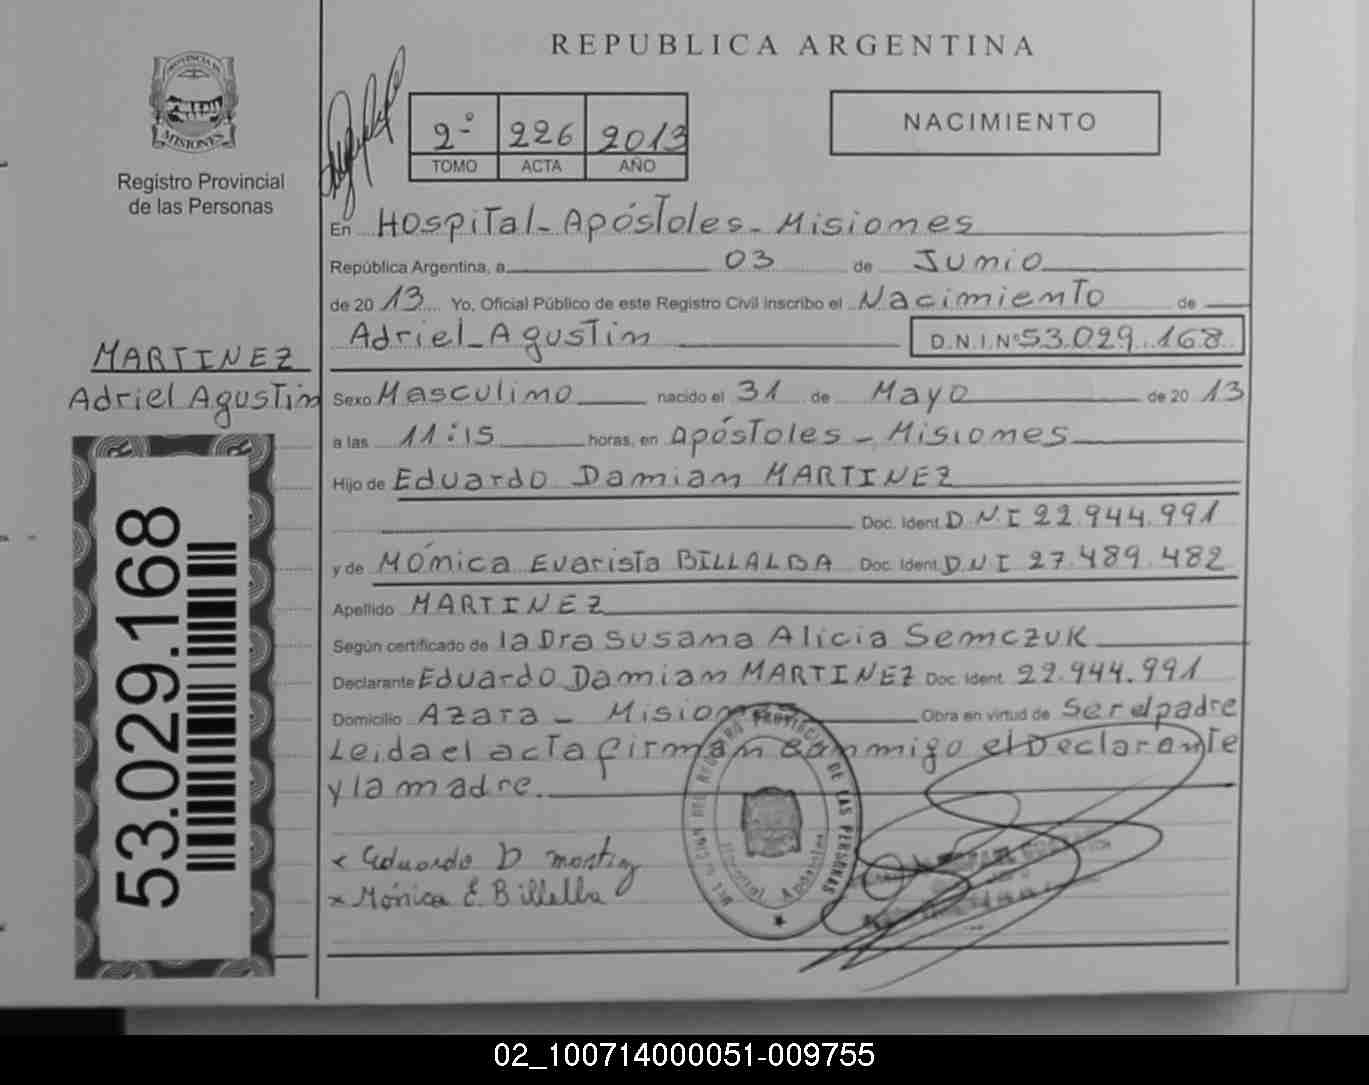 PROVINCIA DE
MISIONES
Registro Provincial
de las Personas
MARTINEZ
Adriel Agustin
53.029.168
REPUBLICA ARGENTINA
2º 226 2013
TOMO ACTA AÑO
NACIMIENTO
En Hospital - Apóstoles - Misiones
República Argentina, a 03 de Junio
de 20 13 Yo, Oficial Público de este Registro Civil inscribo el Nacimiento de
Adriel Agustin D.N.I.Nº 53.029.168
Sexo Masculino nacido el 31 de Mayo de 20 13
a las 11:15 horas, en Apóstoles - Misiones
Hijo de Eduardo Damian MARTINEZ
Doc. Ident. D.N.I 22.944.991
y de Mónica Evarista BILLALBA Doc. Ident. D.N.I 27.489.482
Apellido MARTINEZ
Según certificado de la Dra Susana Alicia Semczuk
Declarante Eduardo Damian MARTINEZ Doc. Ident. 22.944.991
Domicilio Azara - Misiones Obra en virtud de Ser el padre
Leida el acta firman conmigo el Declarante
y la madre.
x Eduardo D Martinez
x Mónica E. Billalba
DEL REGISTRO PROVINCIAL DE LAS PERSONAS
Hospital Apóstoles
02_100714000051-009755